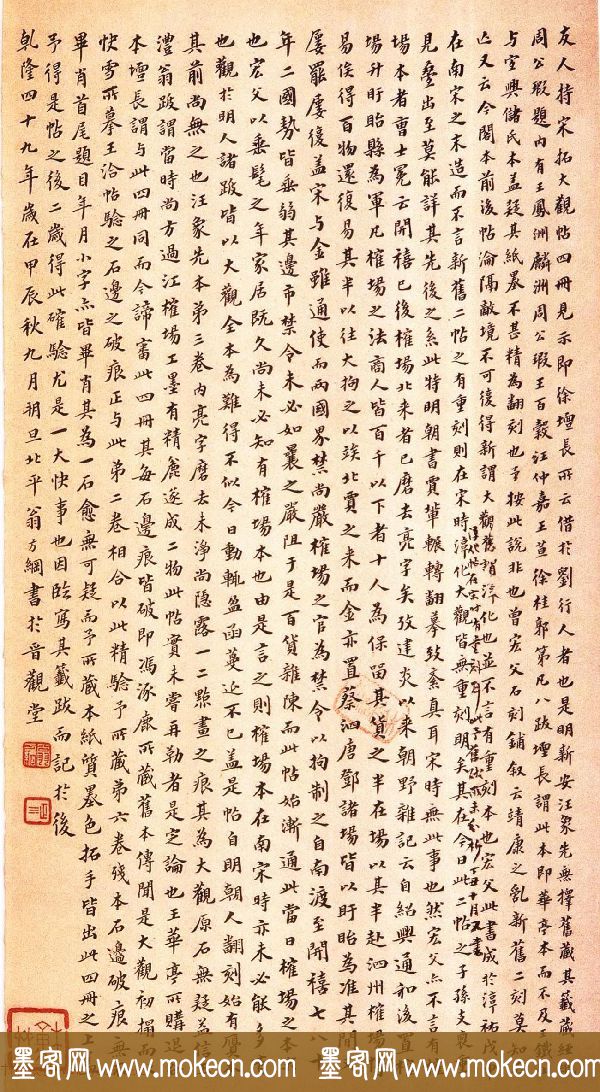 友人持宋拓大觀帖四冊見示即徐壇長所云借於劉行人者也是明新安汪象先無擇舊藏其籤藏經
周公瑕題內有王鳳洲麟洲周公瑕王百穀汪仲嘉王荁徐桂郭第凡八跋壇長謂此本即華亭本而不及
与宜興儲氏本盖疑其紙墨不甚精為翻刻也予按此說非也曾宏父石刻鋪叙云靖康之亂新舊二刻莫知
又云今閣本前後帖淪隔敵境不可復得新謂大觀舊指淳化也並不言有重刻本也宏父此書成於淳祐戊
在南宋之末造而不言新舊二帖之有重刻則在宋時淳化大觀皆無重刻明矣其在今日此二帖之子孫支
見疊出至莫能詳其先後之系此特明朝書賈輩輾轉翻摹致紊真耳宋時無此事也然宏父亦不言有
場本者曹士冕云開禧已後榷場北来者已磨去亮字矣攷建炎以来朝野雜記云自紹興通和後置
場升盱眙縣為軍凡榷場之法商人皆百千以下者十人為保留其貨之半在場以其半赴泗州榷場
易俟得百物還復易其半以往大拘之以竢北賈之来而金亦置蔡泗唐鄧諸場皆以盱眙為準其間
屢罷屢復盖宋与金雖通使而兩國界禁尚嚴榷場之官為禁令以拘制之自南渡至開禧七八十
年二國勢皆垂弱其邊市禁令未必如曩之嚴阻于是百貨雜陳而此帖始漸通此當日榷場之本
也宏父以垂髦之年家居既久尚未必知有榷場本也由是言之則榷場本在南宋時亦未必能多
也觀於明人諸跋皆以大觀全本為難得不似今日動輒盈函蔓延不已盖是帖自明朝人翻刻始有贋
其前尚無之也汪象先本第三卷內亮字磨去未淨尚隱露一二點畫之痕其為大觀原石無疑益信
澧翁跋謂當時尚方過江榷場工墨有精麤遂成二物此帖實未嘗再勒者是定論也王華亭所購
本壇長謂与此四冊同而今諦審此四冊其每石邊痕皆破即馮涿康所藏舊本傳聞是大觀初搨而
快雪所摹王洽帖驗之石邊之破痕正与此第二卷相合以此精驗予所藏第六卷殘本石邊破痕無
畢肖首尾題目年月小字亦皆畢肖其為一石愈無可疑而予所藏本紙質墨色拓手皆出此四冊之上
予得是帖之後二歲得此確驗尤是一大快事也因臨寫其籤跋而記於後
乾隆四十九年歲在甲辰秋九月朔旦北平翁方綱書於晉觀堂
墨客网 www.mokecn.com 墨客网 www.mokecn.com